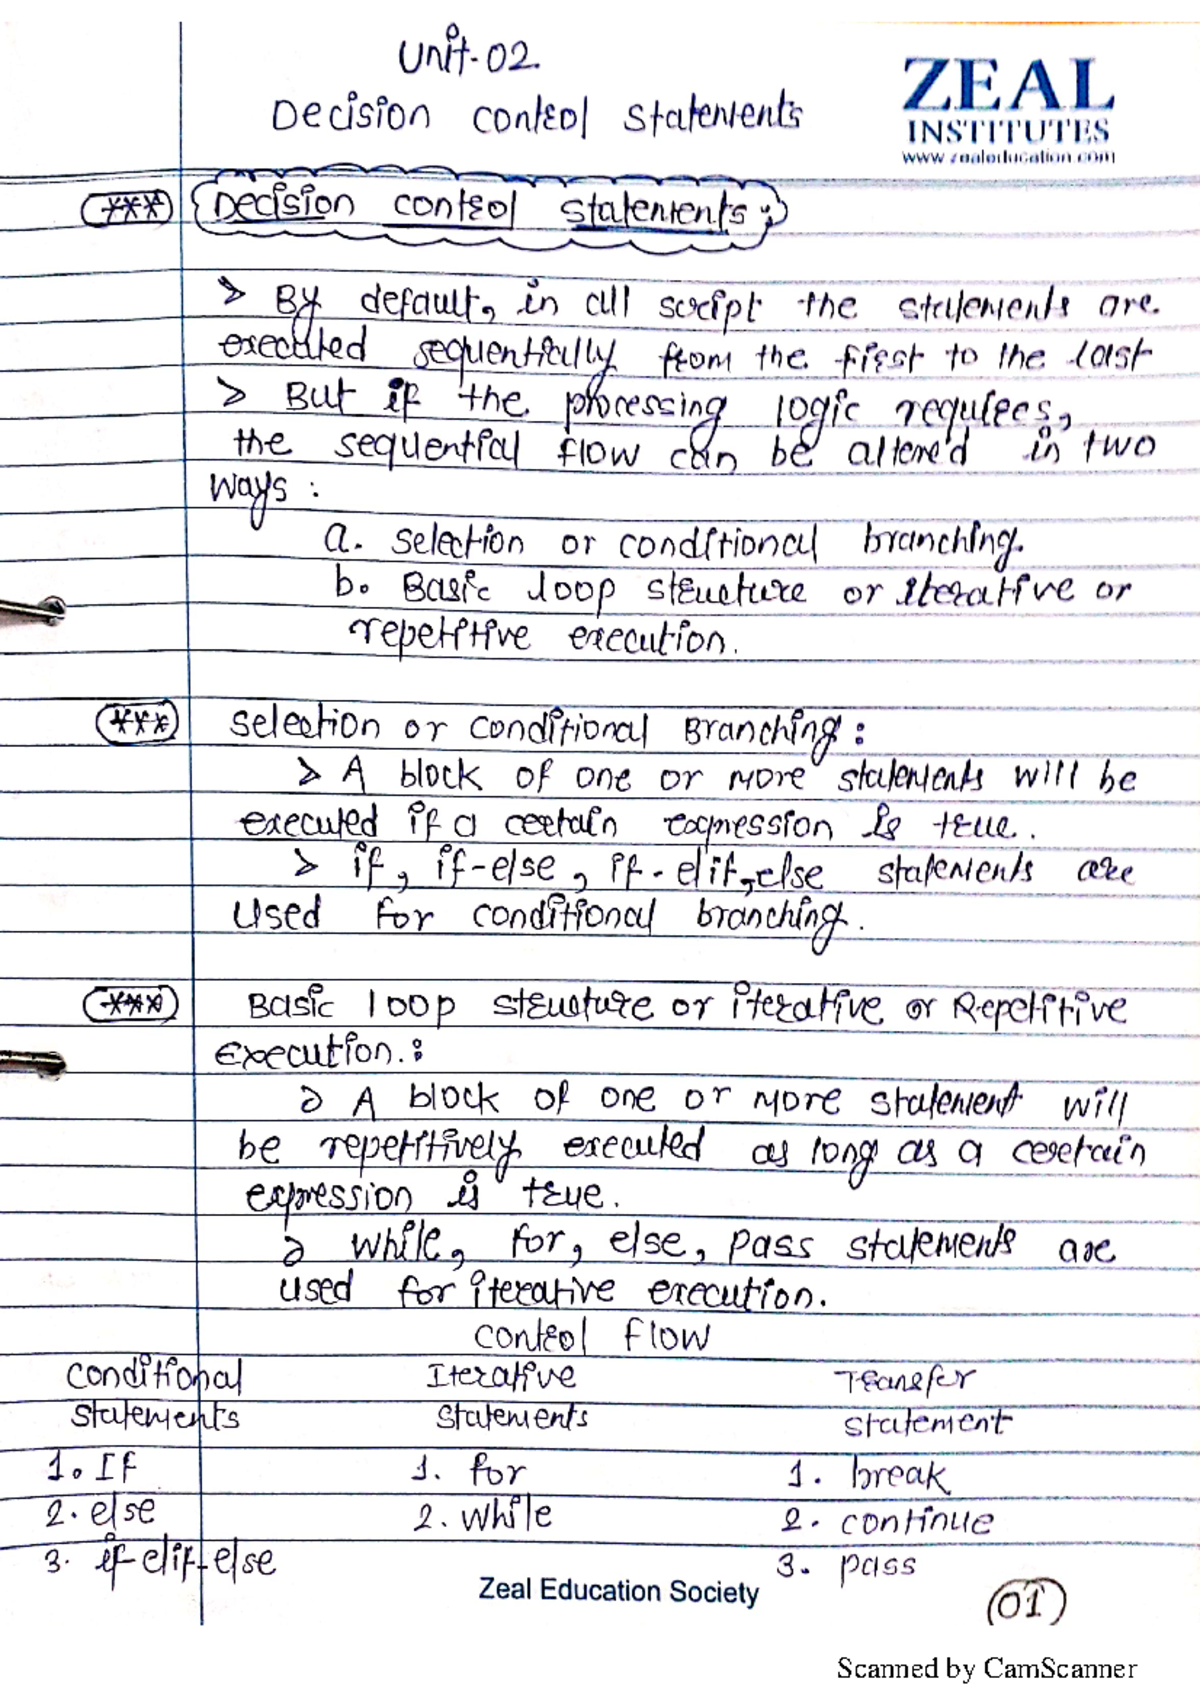 Unit-02
Decision control statements
ZEAL
INSTITUTES
www.zealeducation.com
*** Decision control statements :
> By default, in all script the statements are
executed sequentially from the first to the last
> But if the processing logic requires,
the sequential flow can be altered in two
ways :
a. selection or conditional branching.
b. Basic loop structure or iterative or
repetitive execution.
*** Selection or Conditional Branching :
> A block of one or more statements will be
executed if a certain expression is true.
> if, if-else, if-elif-else statements are
used for conditional branching.
*** Basic loop structure or iterative or Repetitive
Execution. :
> A block of one or more statement will
be repetitively executed as long as a certain
expression is true.
> while, for, else, pass statements are
used for iterative execution.
control flow
Conditional Iterative Transfer
Statements Statements statement
1. If 1. for 1. break
2. else 2. while 2. continue
3. if-elif-else 3. pass
Zeal Education Society
01
Scanned by CamScanner